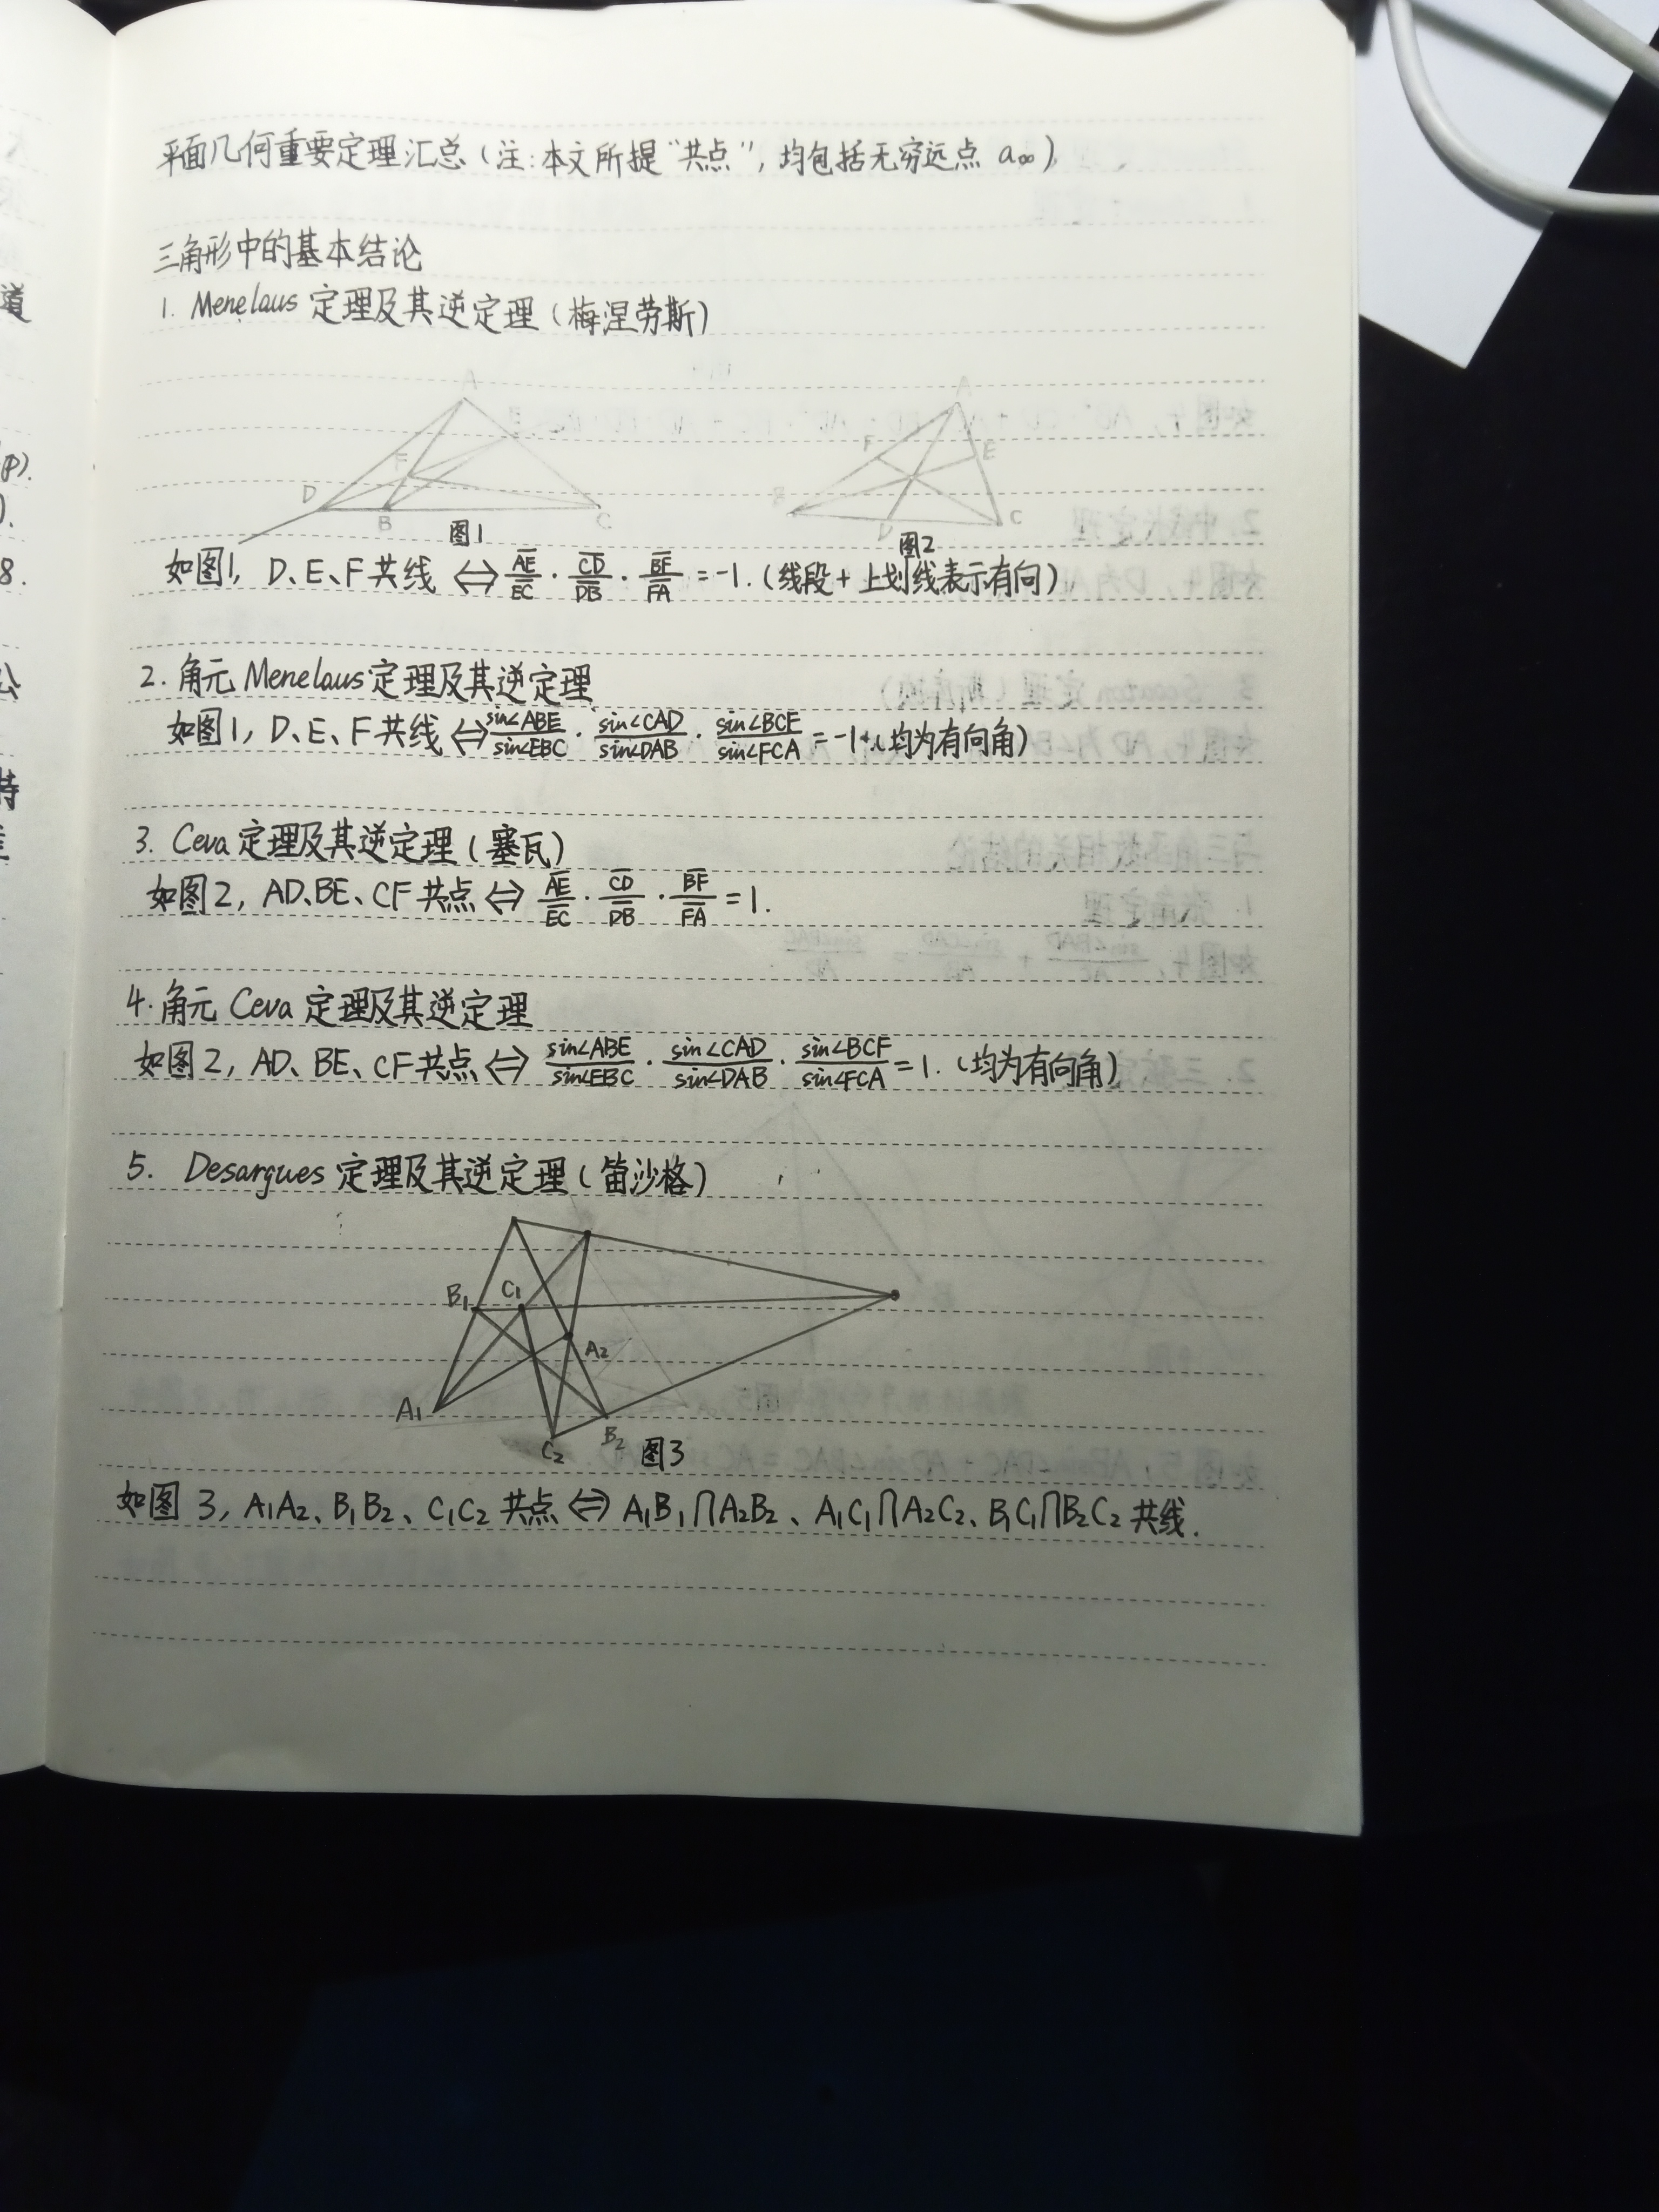 平面几何重要定理汇总(注:本文所提“共点”,均包括无穷远点 a∞)
三角形中的基本结论
1. Menelaus 定理及其逆定理(梅涅劳斯)
A
F
D
B
C
图1
A
F
E
B
D
C
图2
如图1, D、E、F共线 ⇔ AE̅/EC̅ · CD̅/DB̅ · BF̅/FA̅ = -1.(线段+上划线表示有向)
2. 角元 Menelaus定理及其逆定理
如图1, D、E、F共线 ⇔ sin∠ABE/sin∠EBC · sin∠CAD/sin∠DAB · sin∠BCF/sin∠FCA = -1.(均为有向角)
3. Ceva 定理及其逆定理(塞瓦)
如图2, AD、BE、CF共点 ⇔ AE̅/EC̅ · CD̅/DB̅ · BF̅/FA̅ = 1.
4. 角元 Ceva 定理及其逆定理
如图2, AD、BE、CF共点 ⇔ sin∠ABE/sin∠EBC · sin∠CAD/sin∠DAB · sin∠BCF/sin∠FCA = 1.(均为有向角)
5. Desargues 定理及其逆定理(笛沙格)
B₁
C₁
A₂
A₁
B₂
C₂
图3
如图3, A₁A₂、B₁B₂、C₁C₂共点 ⇔ A₁B₁∩A₂B₂、A₁C₁∩A₂C₂、B₁C₁∩B₂C₂共线.
道
8.
公
持